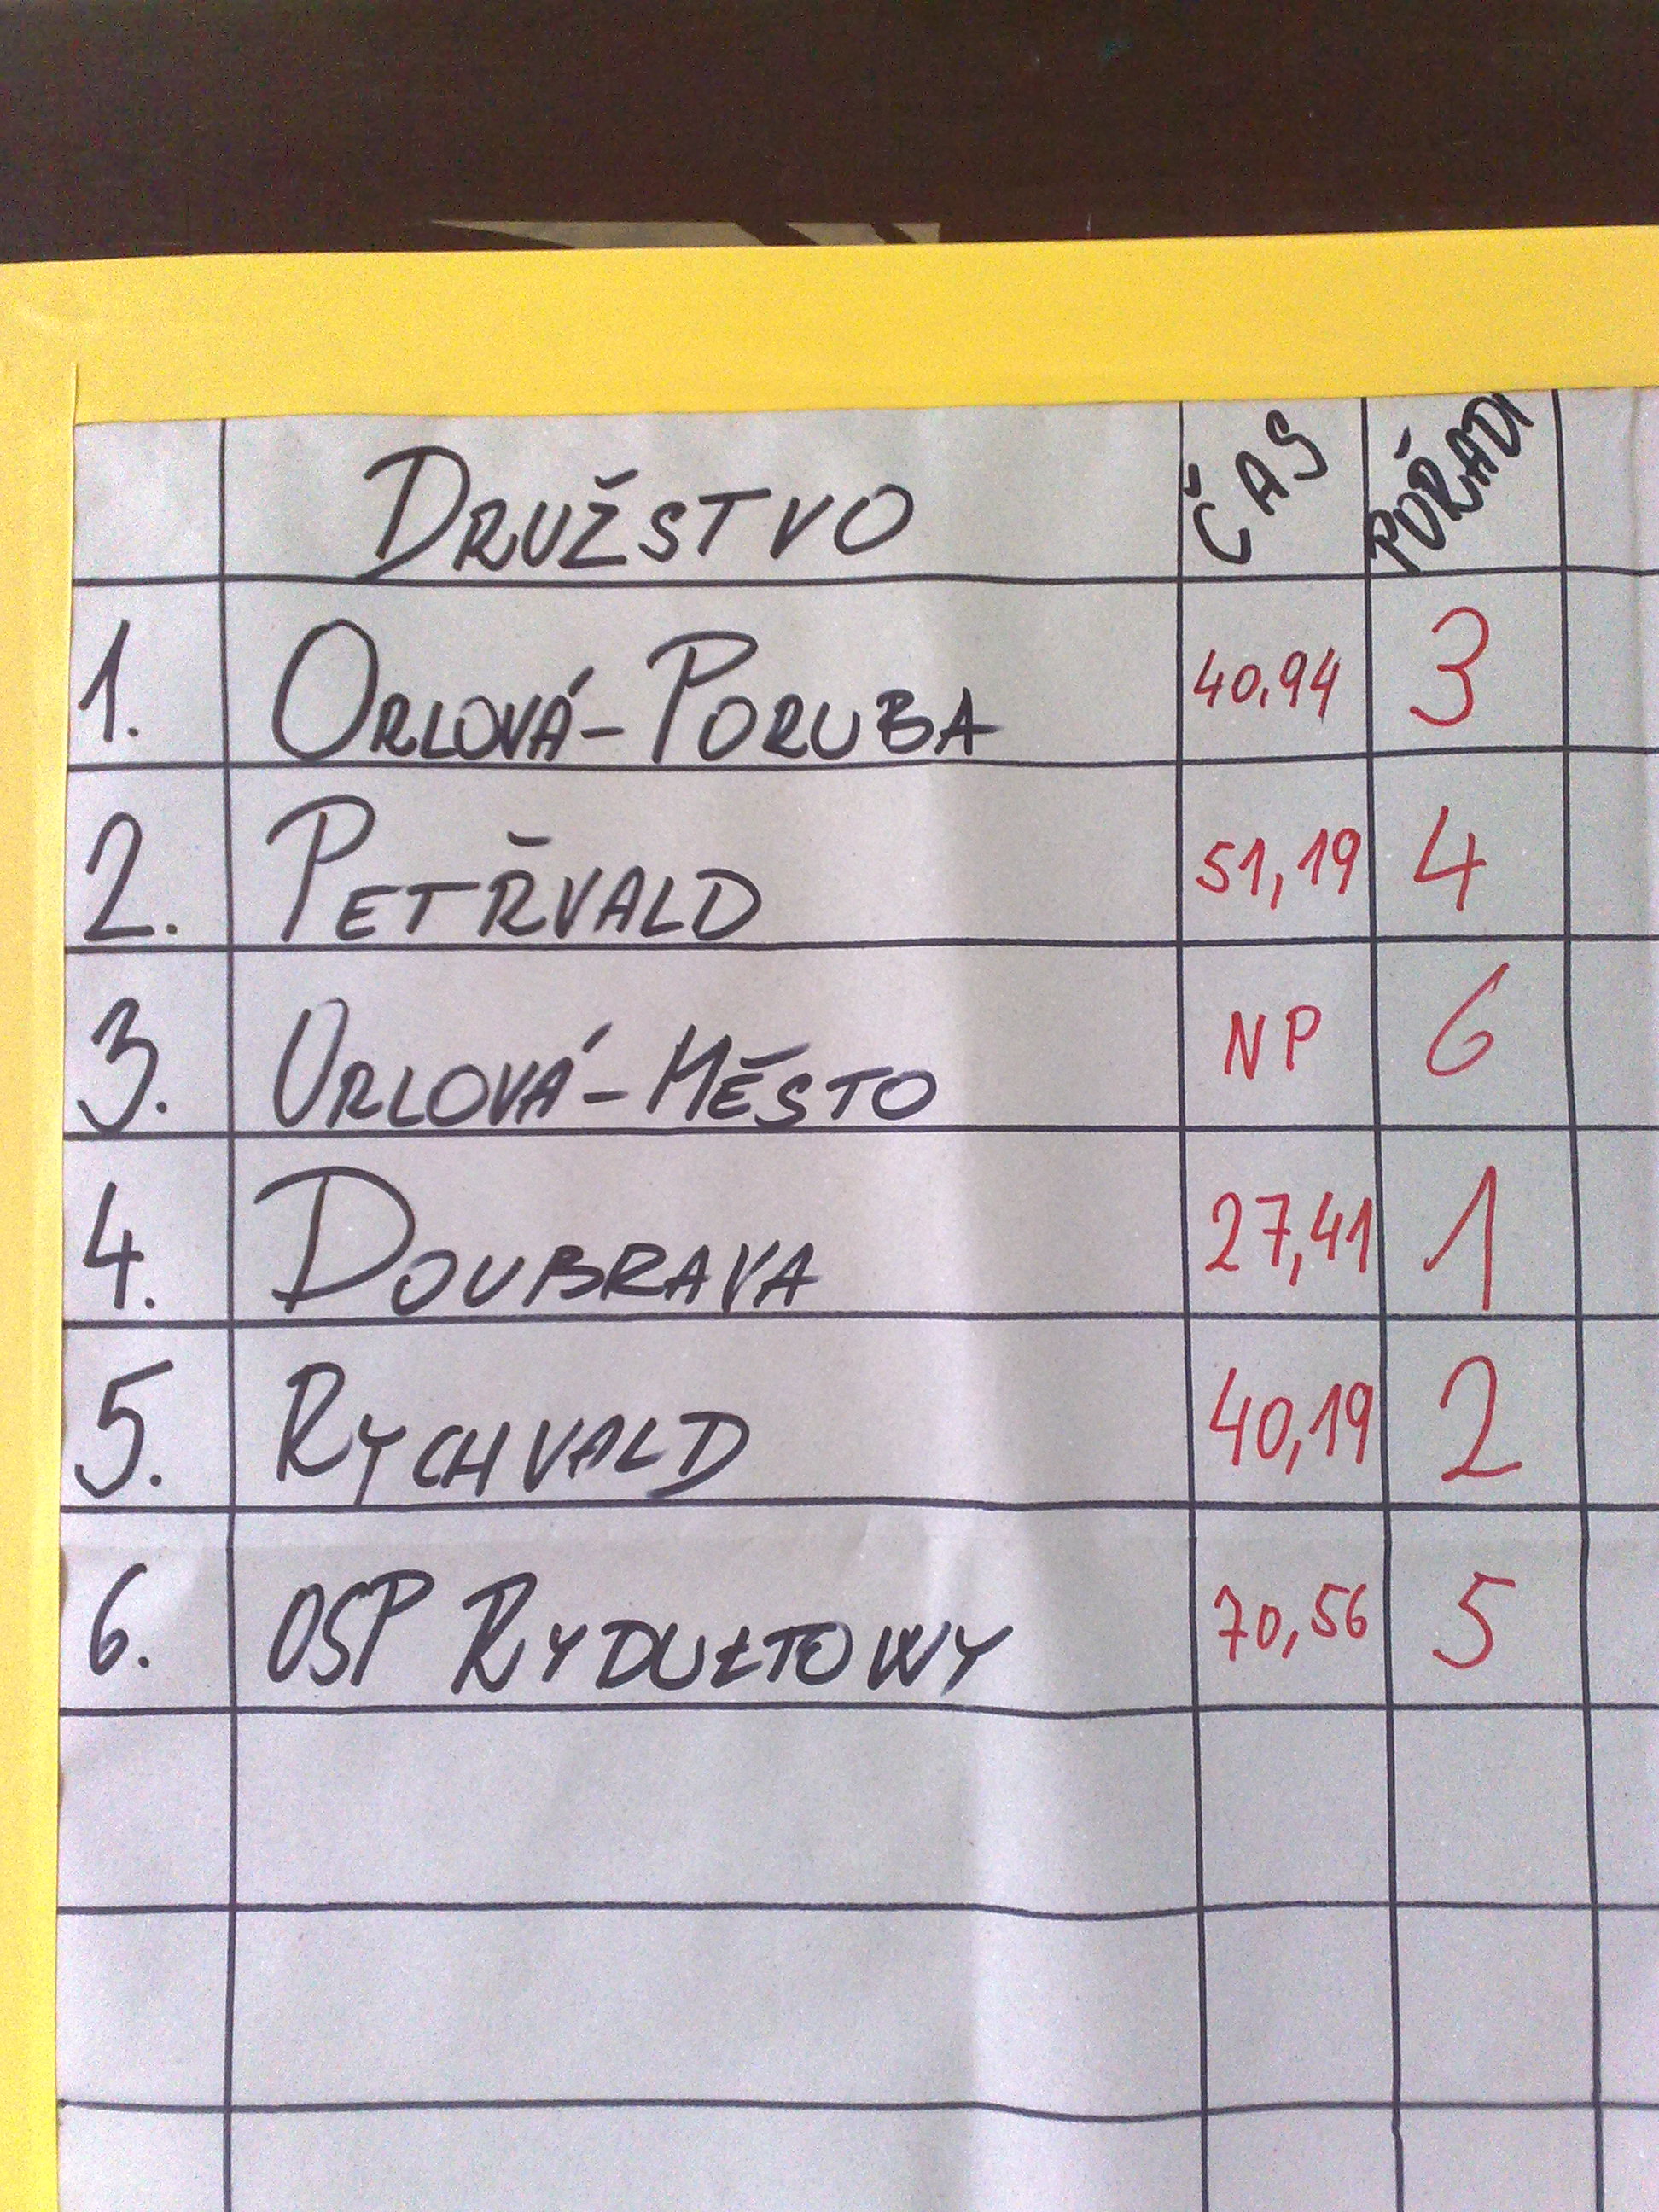 DRUŽSTVO ČAS POŘADÍ
1. ORLOVÁ-PORUBA 40,94 3
2. PETŘVALD 51,19 4
3. ORLOVÁ-MĚSTO NP 6
4. DOUBRAVA 27,41 1
5. RYCHVALD 40,19 2
6. OSP RYDUŁTOWY 70,56 5